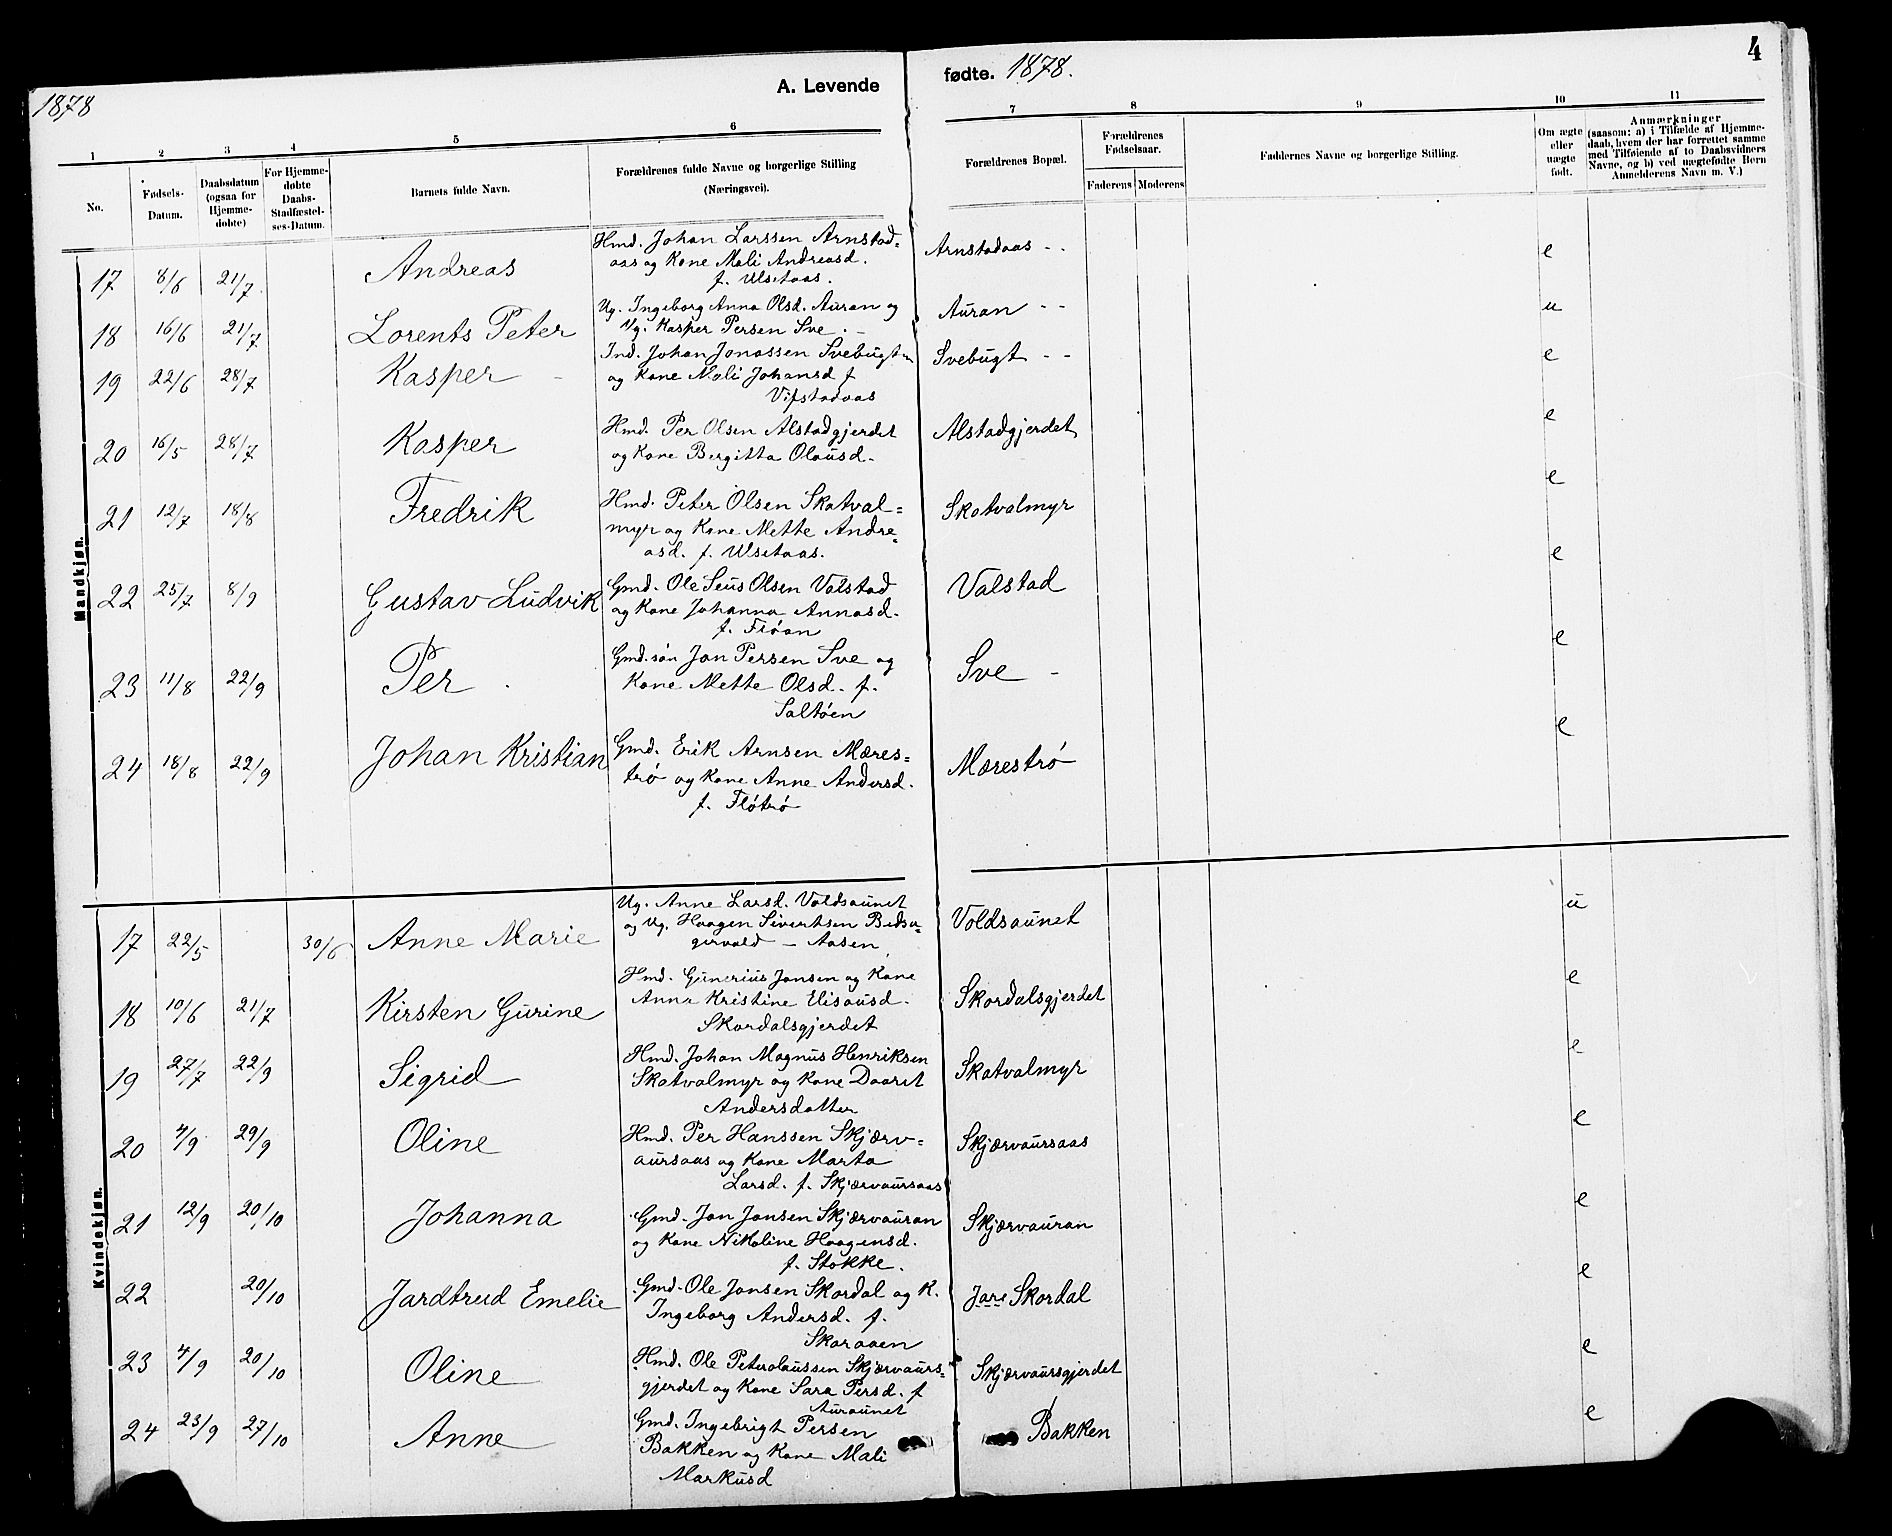 1878
A. Levende
fødte. 1878.
4
1 2 3 4 5 6 7 8 9 10 11
No.
Fødsels-
Datum.
Daabsdatum
(ogsaa for
Hjemme-
døbte)
For Hjemme-
døbte
Daabs-
Stadfæstel-
ses-Datum.
Barnets fulde Navn.
Forældrenes fulde Navne og borgerlige Stilling
(Næringsvei).
Forældrenes Bopæl.
Forældrenes
Fødselsaar.
Faderens Moderens
Faddernes Navne og borgerlige Stilling.
Om ægte
eller
uægte
født.
Anmærkninger
(saasom: a) i Tilfælde af Hjemme-
daab, hvem der har forrettet samme
med Tilføiende af to Daabsvidners
Navne, og b) ved uægtefødte Børn
Anmelderens Navn m. V.)
Mandkjøn.
17 8/6 21/7 Andreas
Hmd. Johan Larssen Arnstad=
aas og Kone Mali Andreasd.
f. Ulsetaas.
Arnstadaas - - e
18 16/6 21/7 Lorents Peter
Ug. Ingeborg Anna Olsd. Auran og
Ug. Kasper Persen Sve. -
Auran - - u
19 22/6 28/7 Kasper -
Ind. Johan Jonassen Svebugt
og Kone Mali Johansd f
Vifstadaas
Svebugt - - e
20 16/5 28/7 Kasper
Hmd. Per Olsen Alstadgjerdet
og Kone Bergitta Olausd.
Alstadgjerdet e
21 12/7 18/8 Fredrik
Hmd. Peter Olsen Skatval=
myr og Kone Mette Andre=
asd. f. Ulsetaas.
Skatvalmyr e
22 25/7 8/9 Gustav Ludvik
Gmd. Ole Seus Olsen Valstad
og Kone Johanna Annasd.
f. Fløan
Valstad e
23 11/8 22/9 Per
Gmd.søn Jon Persen Sve og
Kone Mette Olsd. f.
Saltøen
Sve - e
24 18/8 22/9 Johan Kristian
Gmd. Erik Arnsen Mæres=
trø og Kone Anne Andersd.
f. Fløtrø
Mærestrø e
Kvindekjøn.
17 22/5 30/6 Anne Marie
Ug. Anne Larsd. Voldsaunet
og Ug. Haagen Sivertsen
- Aasen
Voldsaunet u
18 10/6 21/7 Kirsten Gurine
Hmd. Gunerius Jansen og Kone
Anna Kristine Elisausd.
Skordalsgjerdet
Skordalsgjerdet e
19 27/7 22/9 Sigrid
Hmd. Johan Magnus Henriksen
Skatvalmyr og Kone Daaret
Andersdatter
Skatvalmyr e
20 4/9 29/9 Oline
Hmd. Per Hanssen Skjærv=
aursaas og Kone Marta
Larsd. f. Skjærvaursaas
Skjærvaursaas e
21 12/9 20/10 Johanna
Gmd. Jon Jonsen Skjærvauran
og Kone Nikoline Haagensd.
f. Stokke.
Skjærvauran e
22 20/10 Jardtrud Emelie
Gmd. Ole Jonsen Skordal og K.
Ingeborg Andersd. f.
Skaraaen
Jare Skordal e
23 4/9 20/10 Oline
Hmd. Ole Peterolaussen Skjærvaurs=
gjerdet og Kone Sara Persd. f
Auraunet
Skjærvaursgjerdet e
24 23/9 27/10 Anne
Gmd. Ingebrigt Persen
Bakken og Kone Mali
Markusd
Bakken e